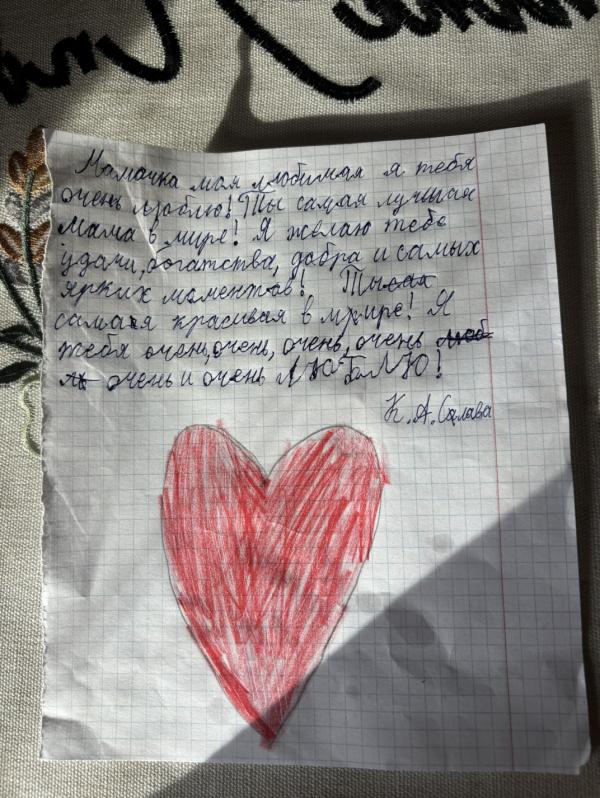 Мамочка моя любимая я тебя
очень люблю! Ты самая лучшая
мама в мире! Я желаю тебе
удачи, богатства, добра и самых
ярких моментов! Ты сам
самая красивая в мире! Я
тебя очень, очень, очень, очень люб
лю очень и очень ЛЮБЛЮ!
К. А. Салава